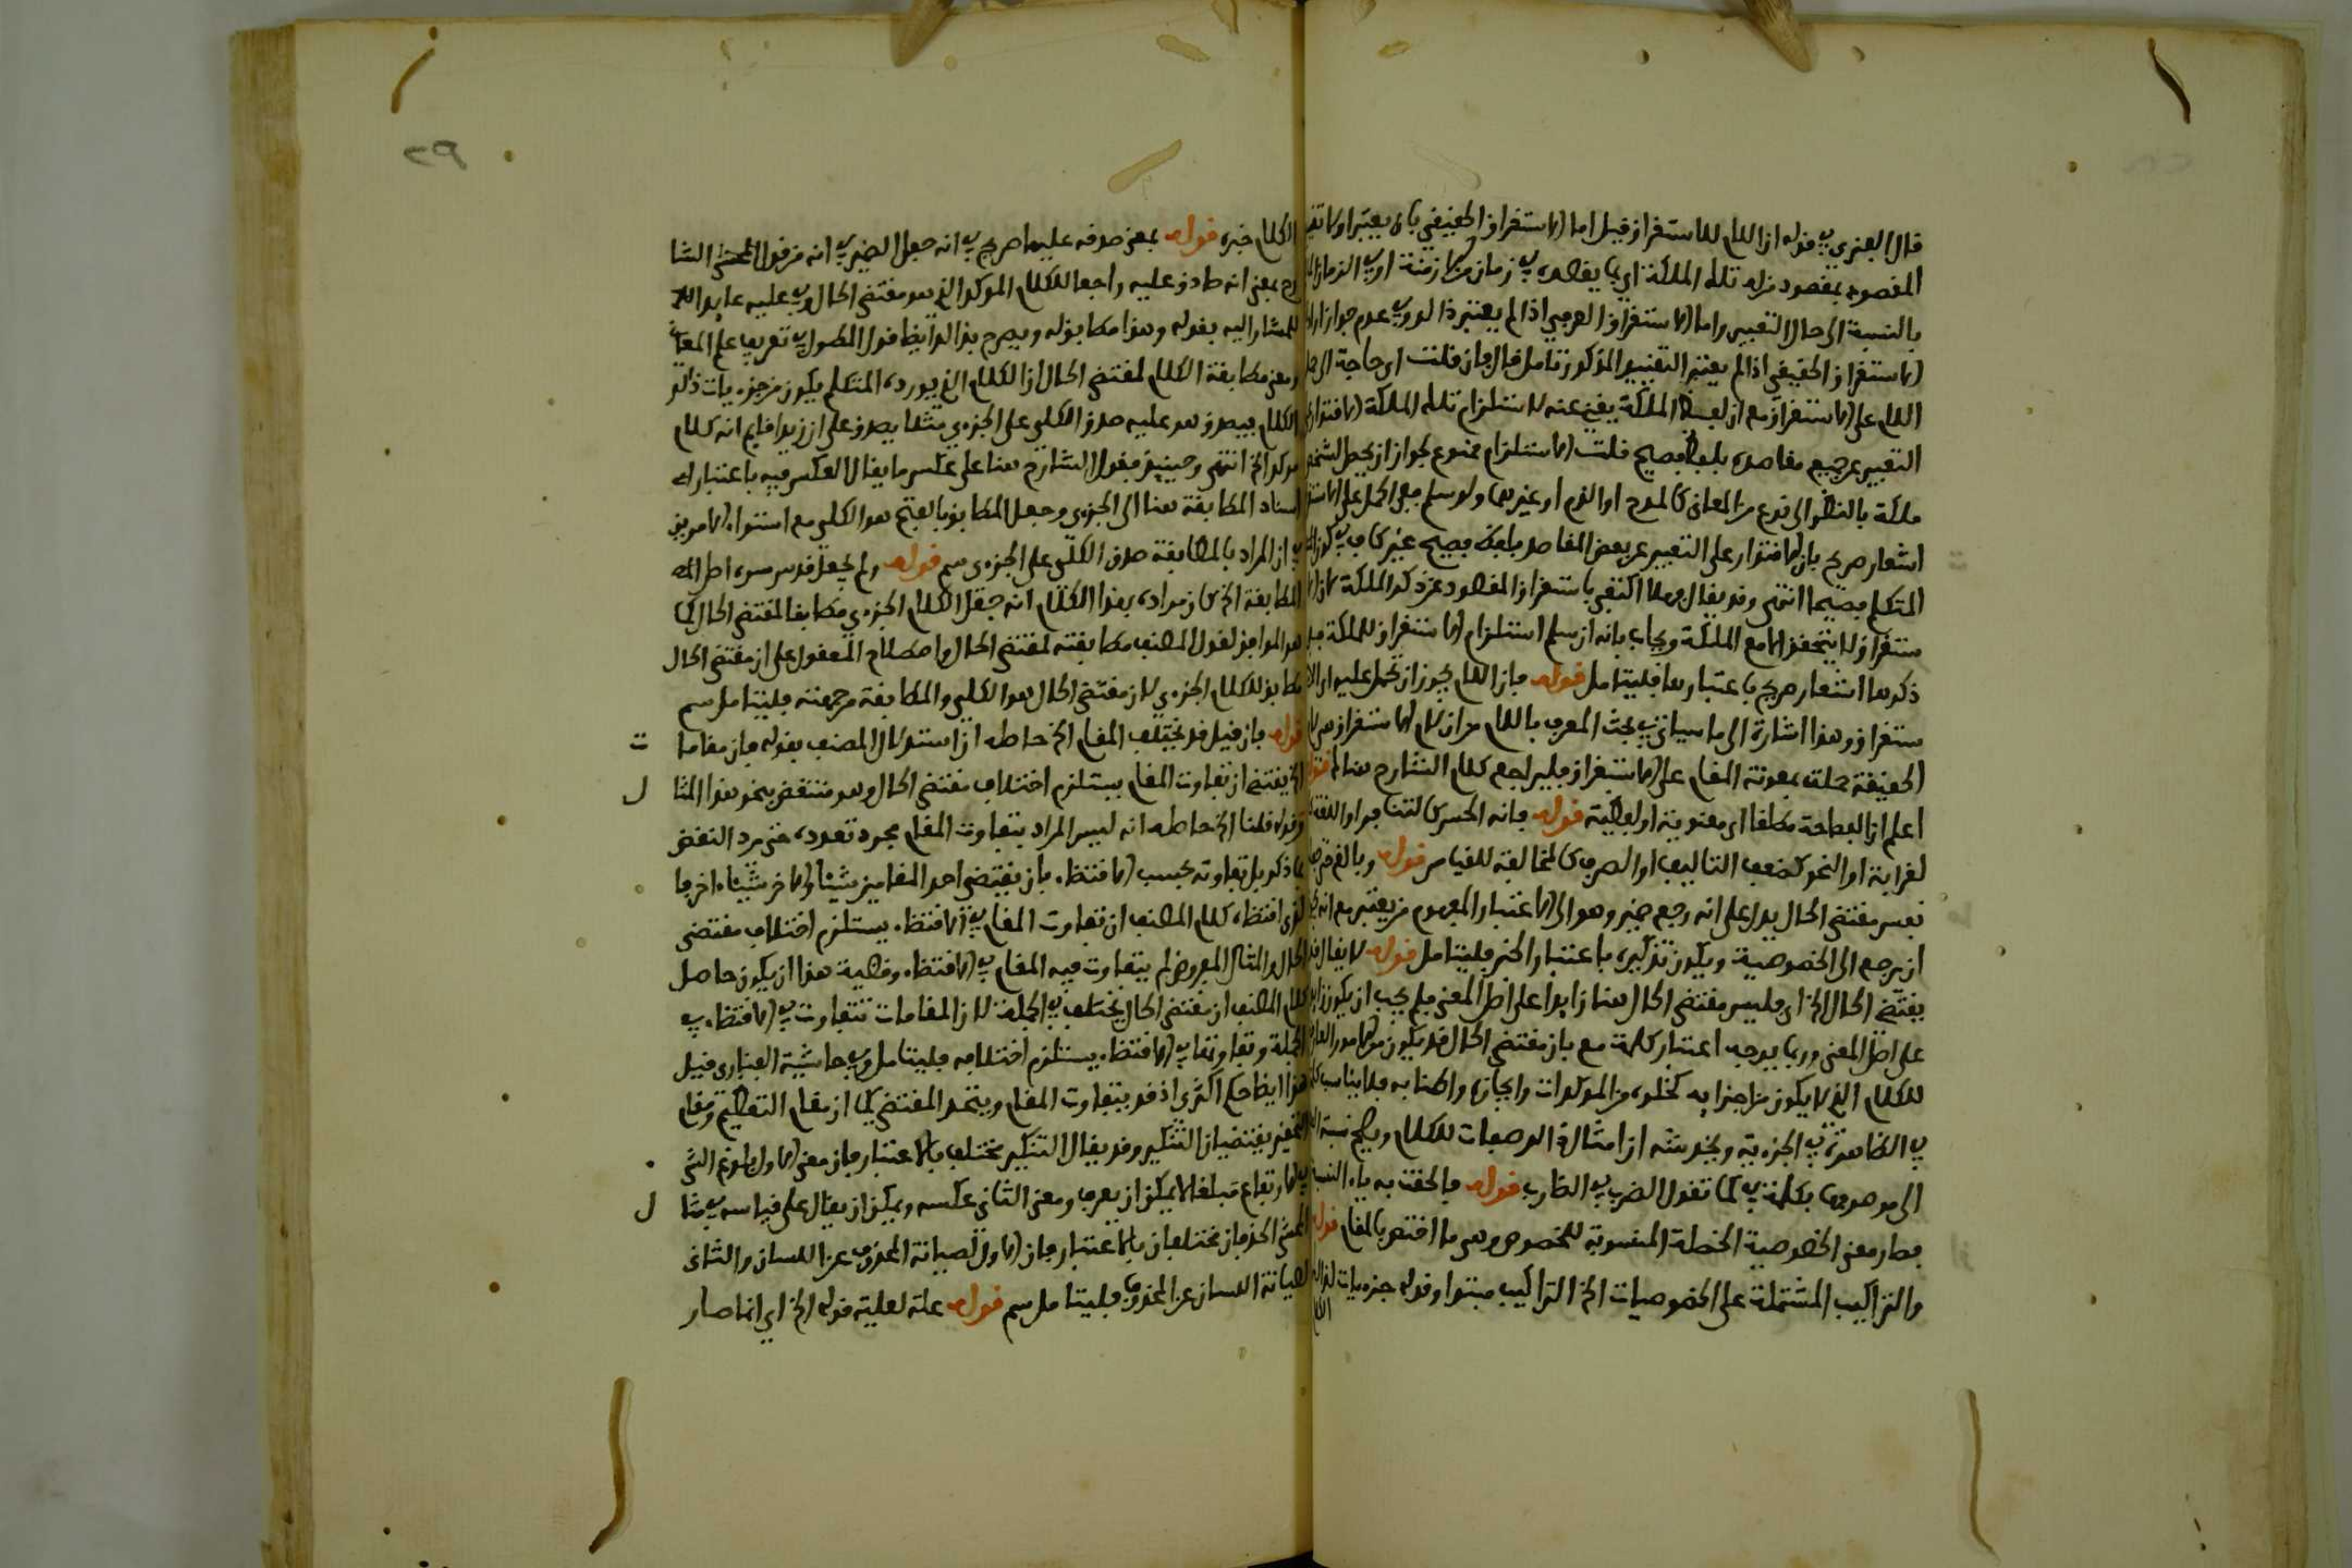 قال الغنزي في قوله ان اللام للاستغراق قيل اما الاستغراق الحقيقي بان يعتبر
المقصود بمقصود من له تلك الملكة اي بما يقصده في زمان من الازمنة او في الزمان
بالنسبة الى حال التعبير واما الاستغراق العرفي اذا لم يعتبر ذا لو في عدم جواز
الاستغراق الحقيقي اذا لم يعتبر التقييد المذكور تامل فان قلت اي حاجة الى
اللام على الاستغراق مع ان لفظ الملكة يغني عنه لاستلزام تلك الملكة الاقتدار
التعبير عن جميع مقاصده بلفظ فصيح قلت الاستلزام ممنوع لجواز ان يحصل
ملكة بالنظر الى نوع من المعاني كالمدح او الذم او غيرهما ولو سلم ففي الحمل على
اشعار صريح بان الاقتدار على التعبير عن بعض المقاصد بلفظ فصيح غير كاف في كون
المتكلم فصيحا انتهى وقد يقال فهلا اكتفي باستغراق المقصود عن ذكر الملكة
ستغراق لا يتحقق الا مع الملكة ويجاب بانه ان سلم استلزام الاستغراق للملكة
ذكرها اشعار صريح باعتبارها فليتامل قوله فان اللام يجوز ان تحمل عليه
ستغراق وهذا اشارة الى ما سياتي في بحث المعرف باللام من ان لام الاستغراق هي
الحقيقة حملت بمعونة المقام على الاستغراق فليراجع كلام الشارح هناك
اعلم ان الفصاحة مطلقا اي معنوية او لفظية قوله فانه الحسن كالتنافر او اللغة
لغرابة او النحو كضعف التاليف او الصرف كالمخالفة للقياس قوله
نفس مقتضى الحال يدل على انه رجع ضمير وهو الى الاعتبار المفهوم من يعتبر مع انه
ان يرجع الى الخصوصية ويكون تذكيره باعتبار الخبر فليتامل قوله لا يقال
يقتضي الحال الخ اي فليس مقتضى الحال هنا زايدا على اصل المعنى فلم يجب ان يكون
على اصل المعنى وربما يوجه اعتبار كلمة مع بان مقتضى الحال قد يكون من الامور
للكلام الذي لا يكون من اجزايه كخلوه من الموكدات وايجازه واطنابه فلا يناسب
في الظاهرة في الجزءية ويخدشه ان امثال هذه الوصفات للكلام ويصح نسبة
الى موصوفها بكلمة في كما تقول الضرب في الضارب قوله فالحقت به ياء النسبة
فصار معنى الخصوصية الخصلة المنسوبة للخصوص وهي ما اختص بالمقام قوله
والتراكيب المشتملة على الخصوصيات الخ التراكيب مبتدا وقوله جزءيات
٢٩
الكلام خبره قوله بمعنى صدقه عليها صريح في انه جعل الضمير في انه من قول المحشي الشا
رح بمعنى انه صادق عليه راجعا للكلام الموكد الذي هو مقتضى الحال وفي عليه عايدا
للمشار اليه بقوله وهذا مطابق له ويصرح بذا لو ايضا قول المطول في تعريف علم المعاني
ومعنى مطابقة الكلام لمقتضى الحال ان الكلام الذي يورده المتكلم يكون من جزءيات ذلك
الكلام فيصدق هو عليه صدق الكلي على الجزءي مثلا يصدق على ان زيدا قايم انه كلام
موكد الخ انتهى وحينئذ فقول الشارح هنا على عكس ما يقال العكس فيه باعتبار
اسناد المطابقة هنا الى الجزءي وجعل المطابق بالفتح هو الكلي مع استواء الامرين
في ان المراد بالمطابقة صدق الكلي على الجزءي سم قوله ولم يجعل قدس سره اصل
المطابقة الخ كان مراده بهذا الكلام انه جعل الكلام الجزءي مطابقا لمقتضى الحال كما
هو الموافق لقول المصنف مطابقته لمقتضى الحال واصطلاح المعقول على ان مقتضى الحال
مطابق للكلام الجزءي لان مقتضى الحال هو الكلي والمطابقة من جهته فليتامل سم
قوله فان قيل قد يختلف المقام الخ حاصله ان استدلال المصنف بقوله فان مقاما ت
الخ يقتضي ان تفاوت المقام يستلزم اختلاف مقتضى الحال وهو منتقض بنحو هذا المثا ل
وقوله قلنا الخ حاصله انه ليس المراد بتفاوت المقام مجرد تعدده حتى يرد النقض
بما ذكر بل تفاوته بحسب الاقتضاء بان يقتضي احد المقامين شيئا والاخر شيئا اخر فا
لذي اقتضاه كلام المصنف ان تفاوت المقام في الاقتضاء يستلزم اختلاف مقتضى
الحال والمثال المعروض لم يتفاوت فيه المقام في الاقتضاء وقضية هذا ان يكون حاصل
كلام المصنف ان مقتضى الحال يختلف في الجملة لان المقامات تتفاوت في الاقتضاء في
الجملة وتفاوتها في الاقتضاء يستلزم اختلافه فليتامل وفي حاشية الفناري قيل
هذا ايضا حكم اكثري اذ قد يتفاوت المقام ويتحد المقتضى كما ان مقام التعظيم ومقام
التحقير يقتضيان التنكير وقد يقال التنكير مختلف بالاعتبار فان معنى الاول بلوغ الشي
في الارتفاع مبلغا لا يمكن ان يعرف ومعنى الثاني عكسه ويمكن ان يقال على قياسه في مثا ل
المحشي الحذفان مختلفان بالاعتبار فان الاول لصيانة المحذوف عن اللسان والثاني
لصيانة اللسان عن المحذوف فليتامل سم قوله علة لعلية قوله الخ اي انما صار